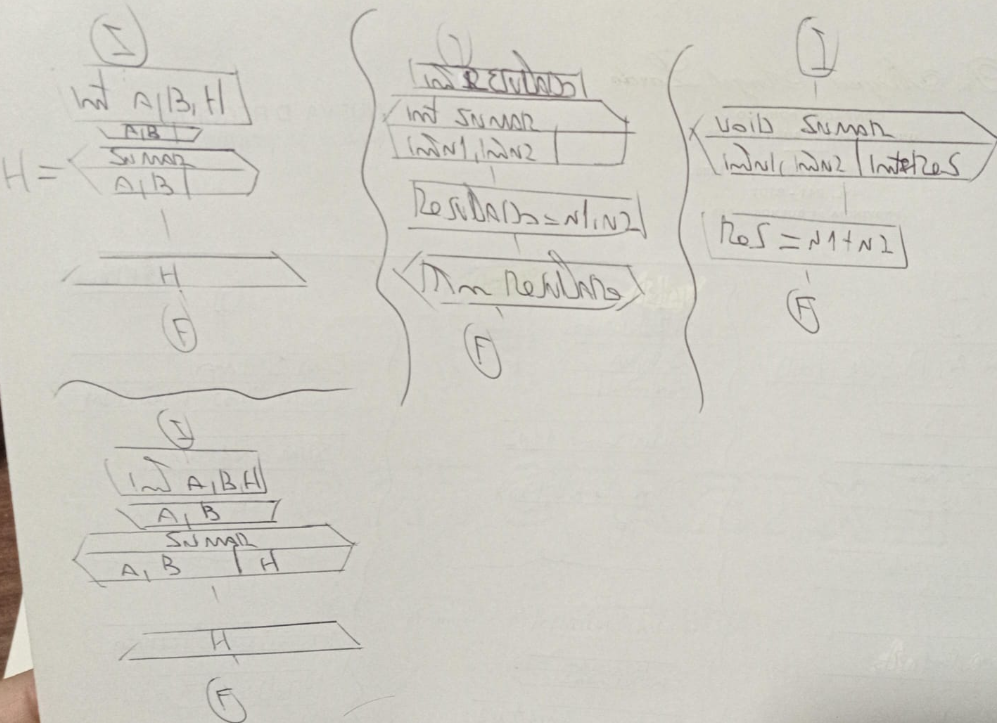 I
int A,B,H
A,B
SUMAR
H =
A,B
H
F
I
int RESULTADO
int SUMAR
int N1, int N2
Resultado = N1,N2
F
I
void SUMAR
int N1, int N2 | int&Res
Res = N1+N2
F
I
int A,B,H
A, B
SUMAR
A, B | H
H
F